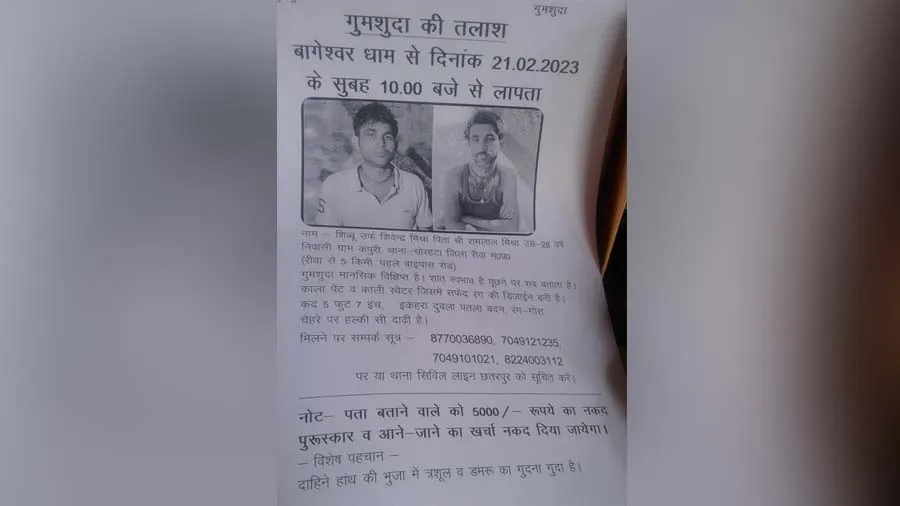 गुमशुदा
गुमशुदा की तलाश
बागेश्वर धाम से दिनांक 21.02.2023
के सुबह 10.00 बजे से लापता
S
नाम – शिब्बू उर्फ शिवेन्द्र मिश्रा पिता श्री रामलाल मिश्रा उम्र–28 वर्ष
निवासी ग्राम कपुरी, थाना–चोरहटा जिला रीवा म0प्र0
(रीवा से 5 किमी. पहले बाइपास रोड)
गुमशुदा मानसिक विक्षिप्त है। शांत स्वभाव है पूछने पर सब बताता है।
काला पेंट व काली स्वेटर जिसमें सफेद रंग की डिजाईन बनी है।
कद 5 फुट 7 इंच, इकहरा दुबला पतला बदन, रंग–गोरा
चेहरे पर हल्की सी दाढ़ी है।
मिलने पर सम्पर्क सूत्र – 8770036890, 7049121235,
7049101021, 8224003112
पर या थाना सिविल लाइन छतरपुर को सूचित करें।
नोट– पता बताने वाले को 5000/– रूपये का नकद
पुरूस्कार व आने–जाने का खर्चा नकद दिया जायेगा।
– विशेष पहचान –
दाहिने हांथ की भुजा में त्रशूल व डमरू का गुदना गुदा है।